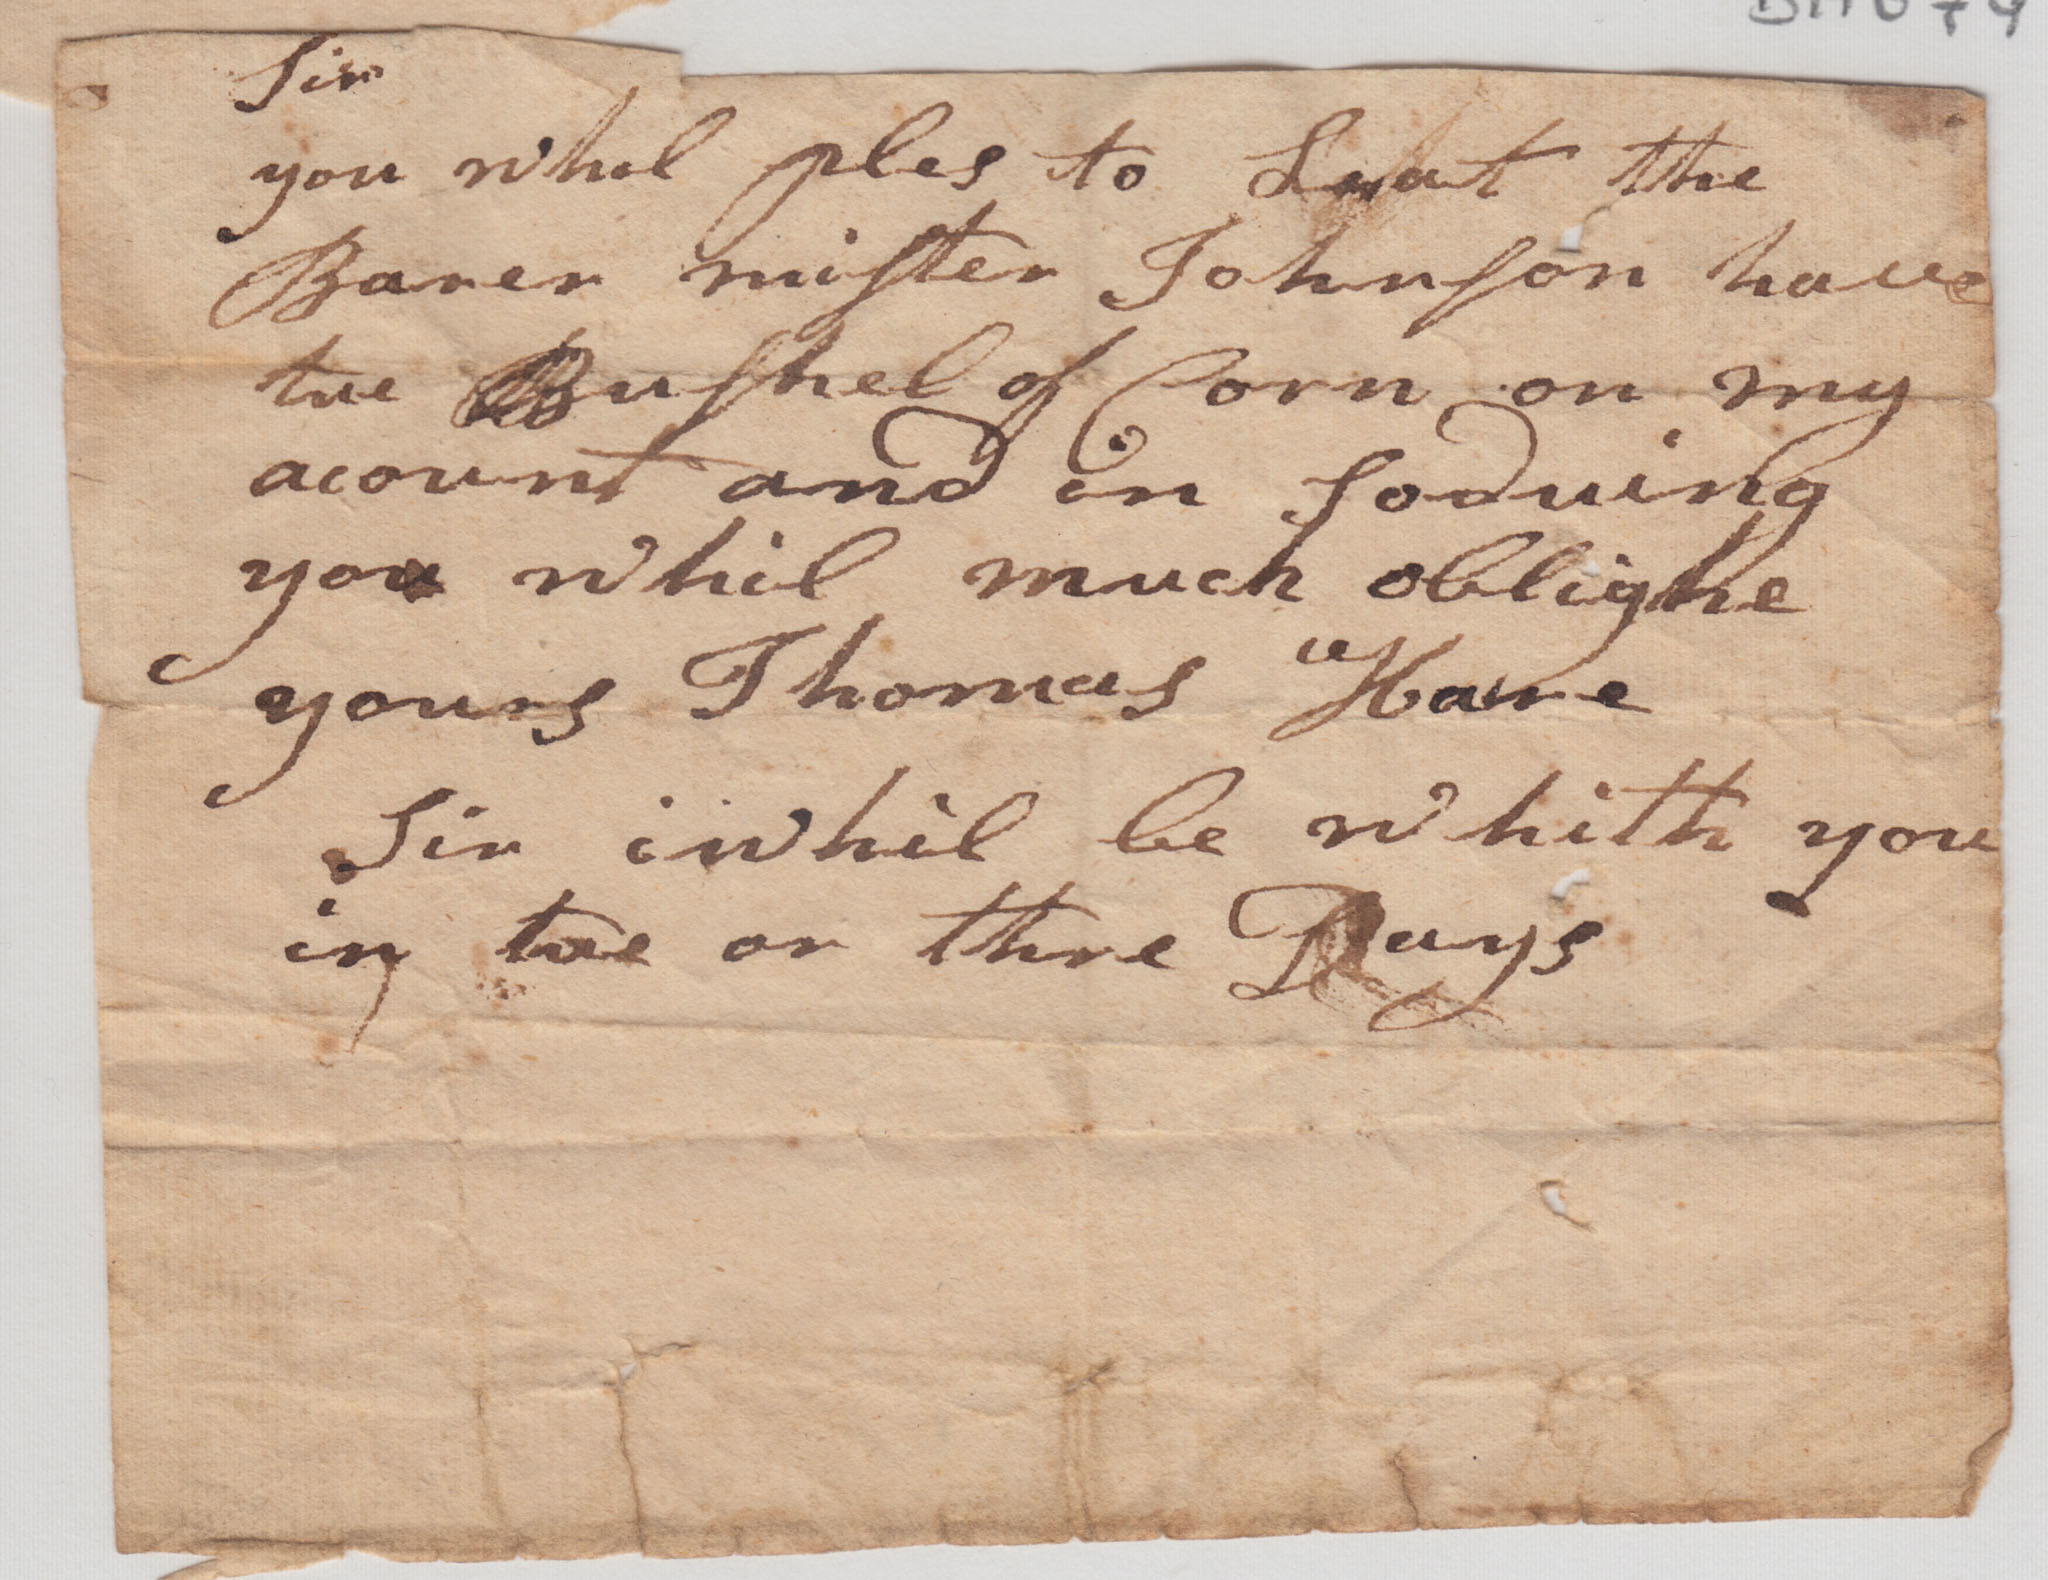 Sir
you whil ples to Leat the
Barer mister Johnson have
tue Bushel of Corn on my
acount and in soduing
you whil much oblighe
yours Thomas Hare
Sir i whil be whith you
in tue or thre Days